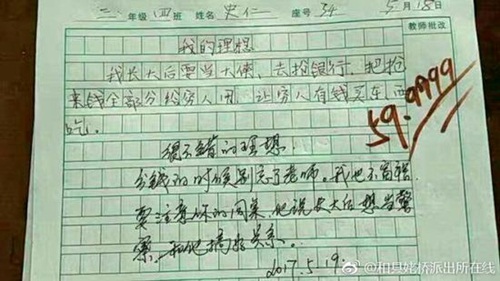 三 年级 四 班 姓名 史仁 座号 34 5月18日
教师批改
我的理想
我长大后要当大侠,去抢银行,把抢
来钱全部分给穷人用,让穷人有钱买东西
吃。
59.9999
很不错的理想
分钱的时候别忘了老师。我也不富裕
要注意你的同桌,他说长大后想当警
察,和他搞好关系。
2017.5.19.
@和县姥桥派出所在线